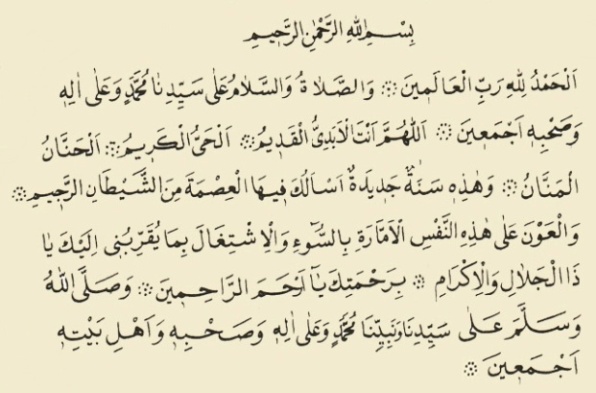 بِسْمِ اللهِ الرَّحْمٰنِ الرَّحٖيمِ
اَلْحَمْدُ لِلّٰهِ رَبِّ الْعَالَمٖينَ ۞ وَالصَّلَاةُ وَالسَّلَامُ عَلٰى سَيِّدِنَا مُحَمَّدٍ وَعَلٰى اٰلِهٖ
وَصَحْبِهٖ اَجْمَعٖينَ ۞ اَللّٰهُمَّ اَنْتَ الْاَبَدِىُّ الْقَدٖيمُ ۞ اَلْحَىُّ الْكَرٖيمُ ۞ اَلْحَنَّانُ
الْمَنَّانُ ۞ وَهٰذِهٖ سَنَةٌ جَدٖيدَةٌ اَسْاَلُكَ فٖيهَا الْعِصْمَةَ مِنَ الشَّيْطَانِ الرَّجٖيمِ ۞
وَالْعَوْنَ عَلٰى هٰذِهِ النَّفْسِ الْاَمَّارَةِ بِالسُّوٓءِ وَالْاِشْتِغَالَ بِمَا يُقَرِّبُنٖى اِلَيْكَ يَا
ذَا الْجَلَالِ وَالْاِكْرَامِ ۞ بِرَحْمَتِكَ يَٓا اَرْحَمَ الرَّاحِمٖينَ ۞ وَصَلَّى اللهُ
وَسَلَّمَ عَلٰى سَيِّدِنَا وَنَبِيِّنَا مُحَمَّدٍ وَعَلٰى اٰلِهٖ وَصَحْبِهٖ وَاَهْلِ بَيْتِهٖ
اَجْمَعٖينَ ۞